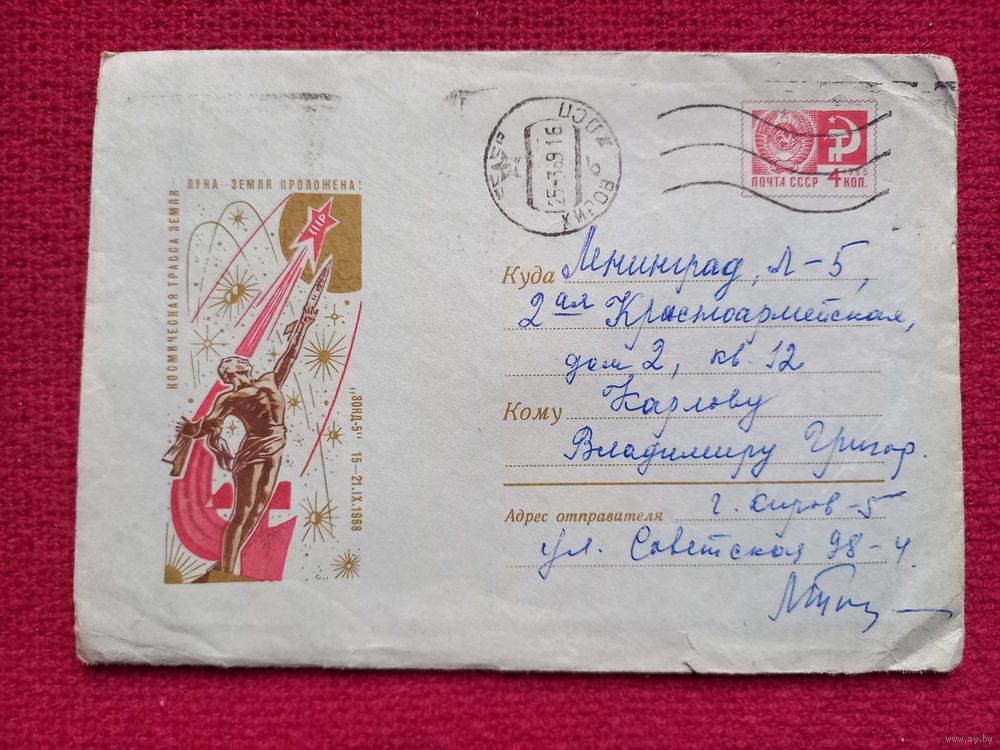 КОСМИЧЕСКАЯ ТРАССА ЗЕМЛЯ
ЛУНА–ЗЕМЛЯ ПРОЛОЖЕНА!
СССР
„ЗОНД-5“ 15–21.IX.1968
25-3 69 16
ПОЧТА СССР 4 КОП.
1966
Куда Ленинград, Л-5,
2ая Красноармейская,
дом 2, кв. 12
Кому Карлову
Владимиру Григор.
Адрес отправителя г. Киров-5
ул. Советская 98-4.
www.ay.by